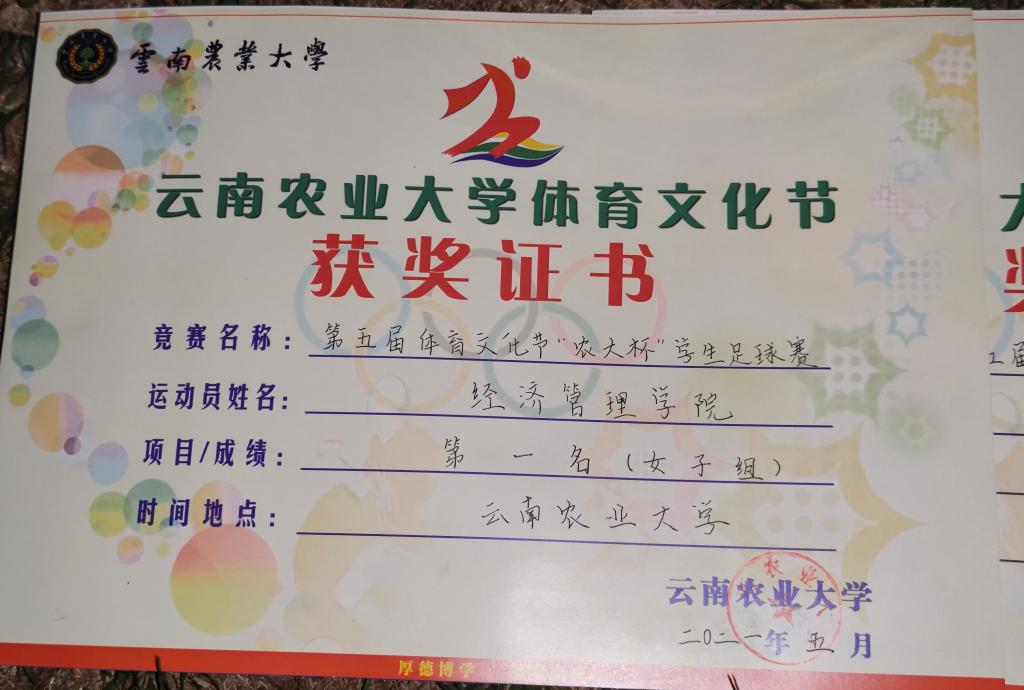 雲南農業大學
云南农业大学体育文化节
获奖证书
竞赛名称：第五届体育文化节“农大杯”学生足球赛
运动员姓名：经济管理学院
项目/成绩：第一名（女子组）
时间地点：云南农业大学
云南农业大学
二〇二一年五月
厚德博学